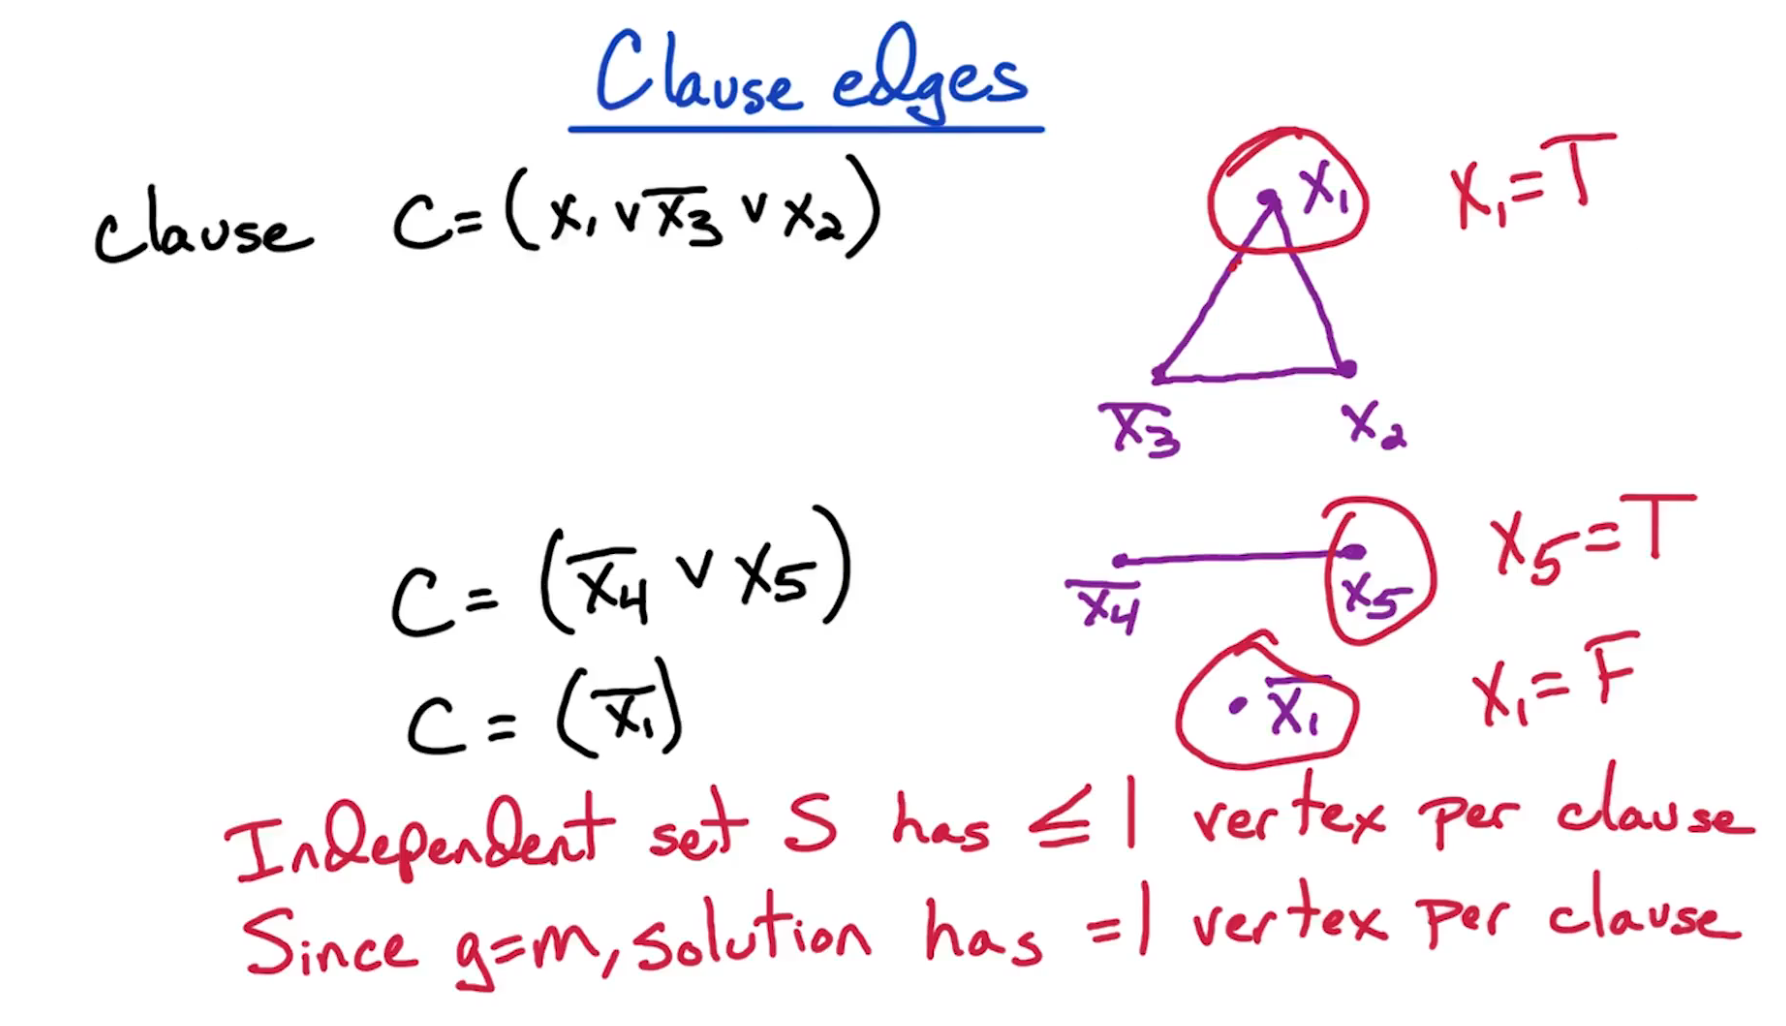 Clause edges
clause C = (x₁ ∨ x̅₃ ∨ x₂)
x₁
x₁ = T
x̅₃
x₂
C = (x̅₄ ∨ x₅)
x̅₄
x₅
x₅ = T
C = (x̅₁)
x̅₁
x₁ = F
Independent set S has ≤ 1 vertex per clause
Since g=m, solution has =1 vertex per clause